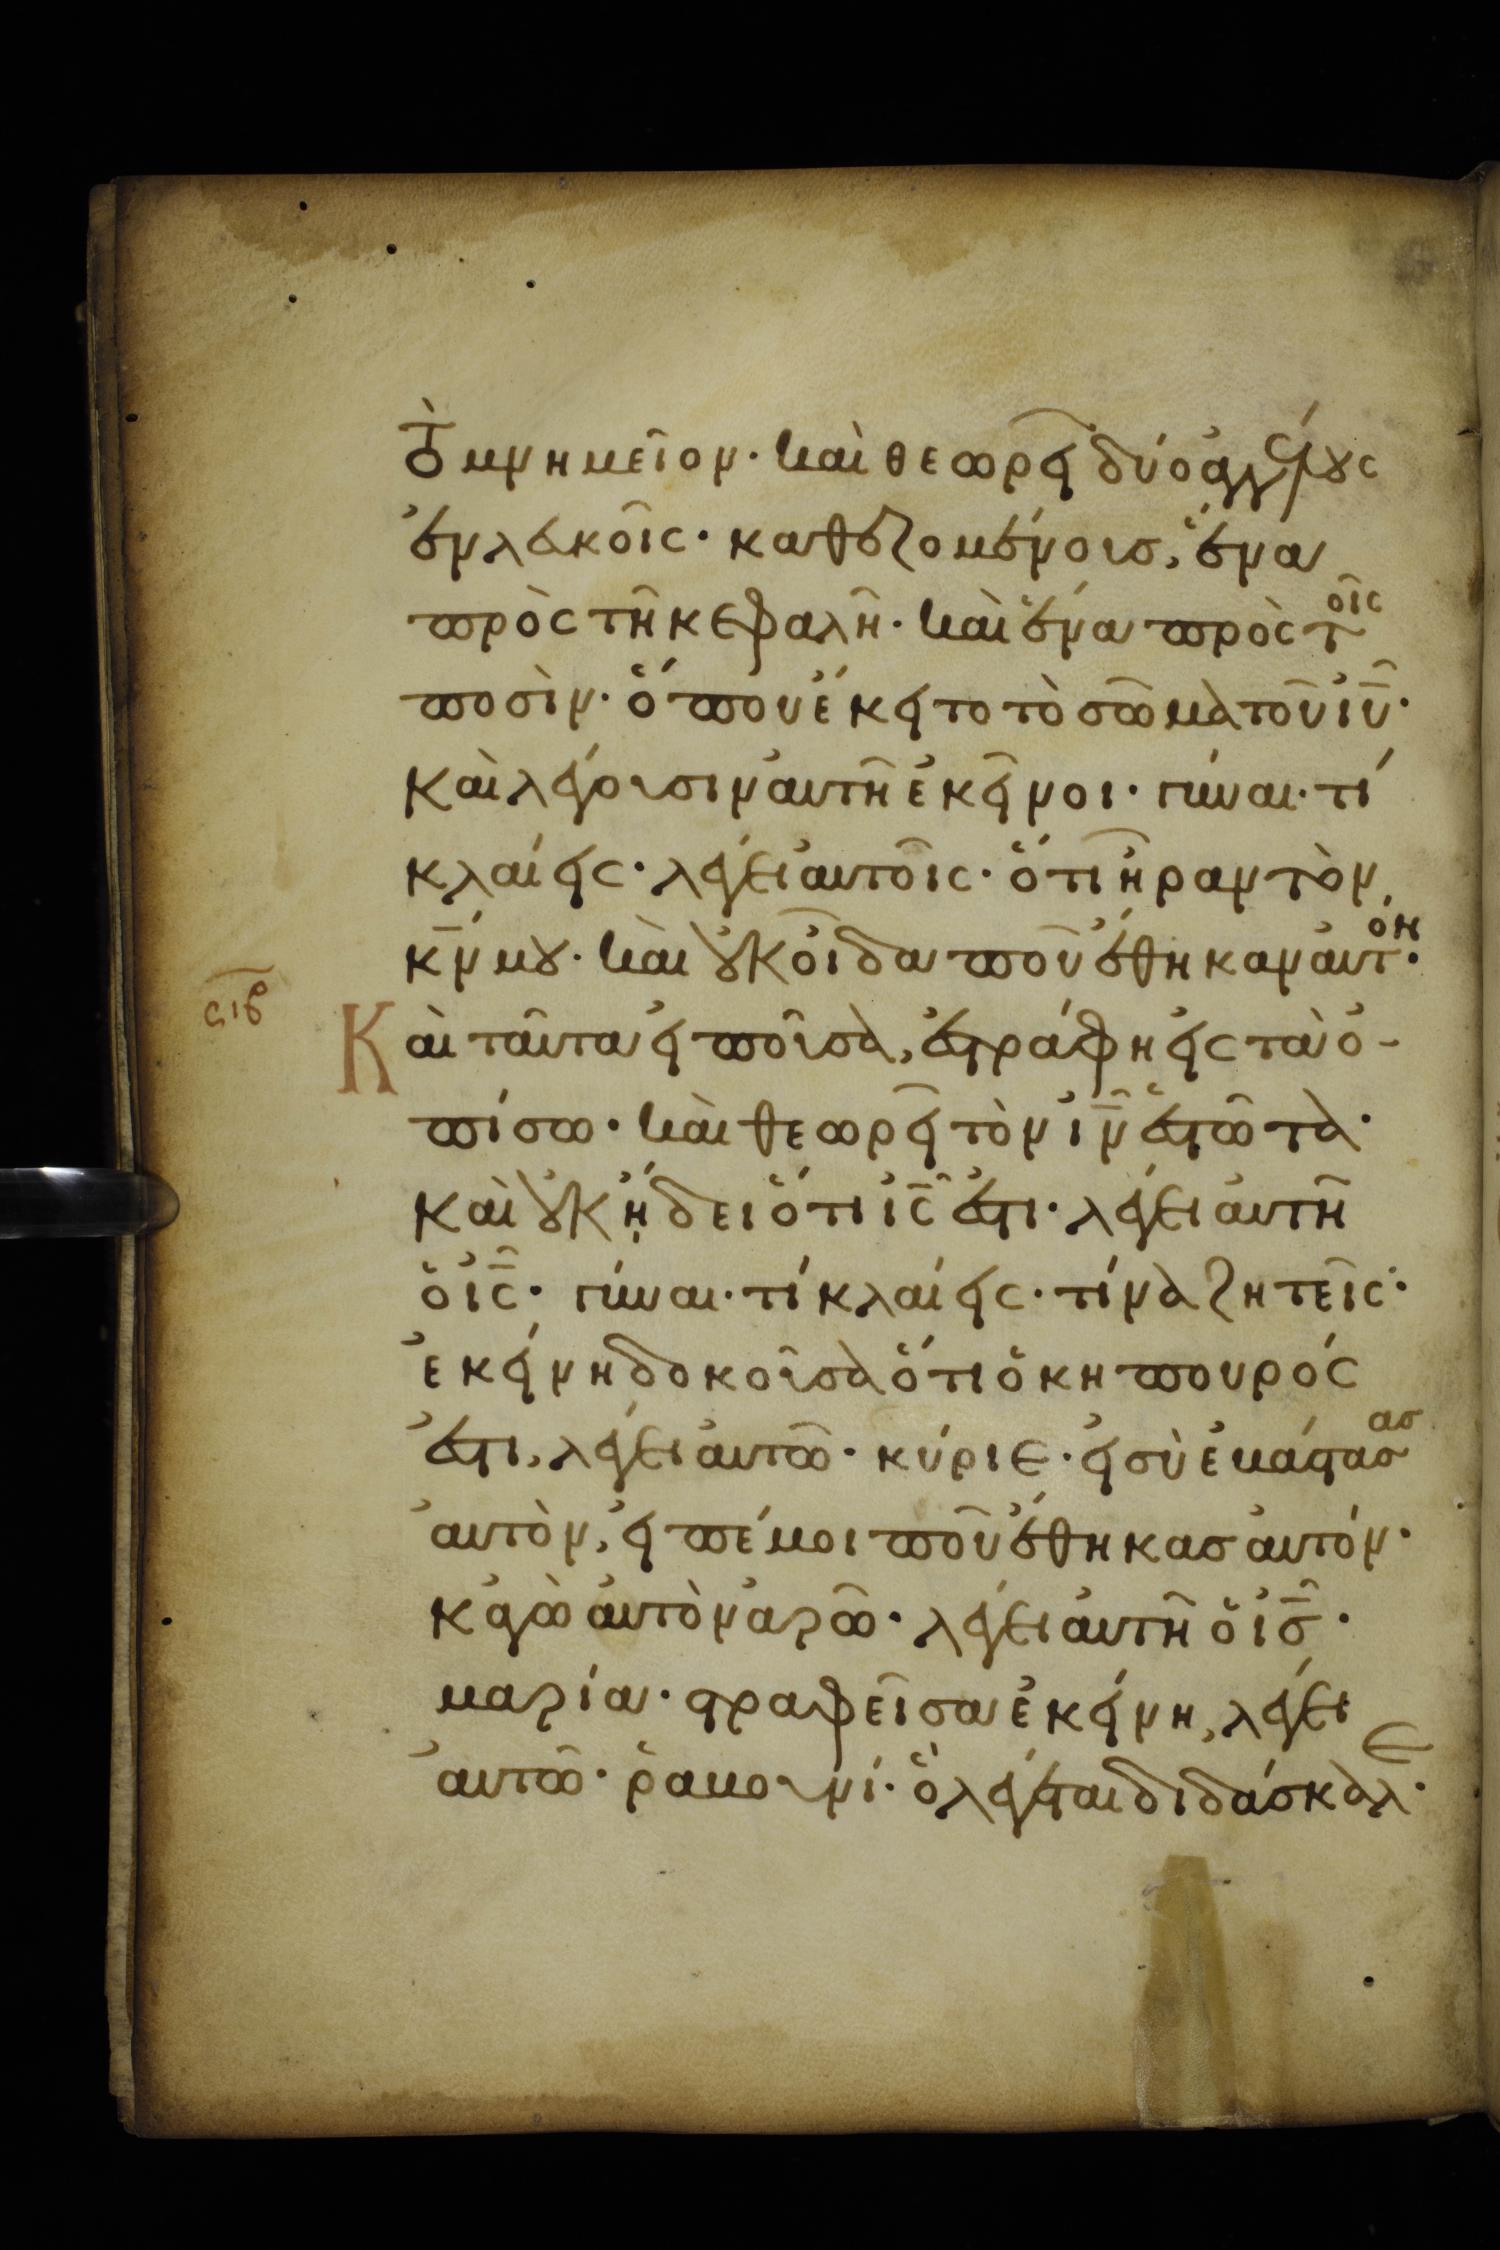 τὸ μνημεῖον· καὶ θεωρεῖ δύο ἀγγέλους
ἐν λευκοῖς· καθεζομένους, ἕνα
πρὸς τῆ κεφαλῆ· καὶ ἕνα πρὸς τοῖς
ποσὶν· ὅπου ἔκειτο τὸ σῶμα τοῦ ἰῦ·
καὶ λέγουσιν αὐτῆ ἐκεῖνοι· γύναι· τί
κλαίεις· λέγει αὐτοῖς· ὅτι ἦραν τὸν
κ̅ν̅ μου· καὶ οὐκ οἶδα ποῦ ἔθηκαν αὐτόν·
ϛιβ
Καὶ ταῦτα εἰποῦσα, ἐστράφη εἰς τὰ ὀ-
πίσω· καὶ θεωρεῖ τὸν ἰ̅ν̅ ἑστῶτα·
καὶ οὐκ ἤδει ὅτι ἰ̅ς̅ ἐστι· λέγει αὐτῆ
ὁ ἰ̅ς̅· γύναι· τί κλαίεις· τίνα ζητεῖς·
ἐκείνη δοκοῦσα ὅτι ὁ κηπουρός
ἐστι, λέγει αὐτῶ· κύριε· εἰ σὺ ἐβάστασας
αὐτὸν, εἰπέ μοι ποῦ ἔθηκας αὐτόν·
κἀγὼ αὐτὸν ἀρῶ· λέγει αὐτῆ ὁ ἰ̅ς̅·
μαρία· στραφεῖσα ἐκείνη, λέγει
αὐτῶ· ῥαβουνί· ὃ λέγεται διδάσκαλε·